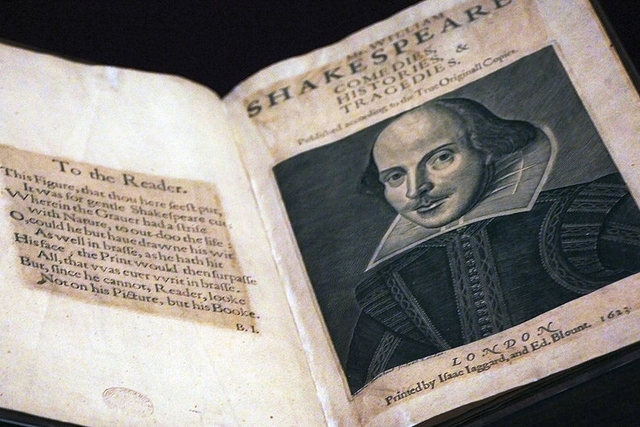 To the Reader.
This Figure, that thou here ſeeſt put,
It was for gentle Shakeſpeare cut;
Wherein the Grauer had a ſtrife
with Nature, to out-doo the life:
O, could he but haue drawne his wit
As well in braſſe, as he hath hit
His face; the Print would then ſurpaſſe
All, that vvas euer vvrit in braſſe.
But, ſince he cannot, Reader, looke
Not on his Picture, but his Booke.
B. I.
Mr. WILLIAM
SHAKESPEARE
COMEDIES,
HISTORIES, &
TRAGEDIES.
Publiſhed according to the True Originall Copies.
LONDON
Printed by Iſaac Iaggard, and Ed. Blount. 1623